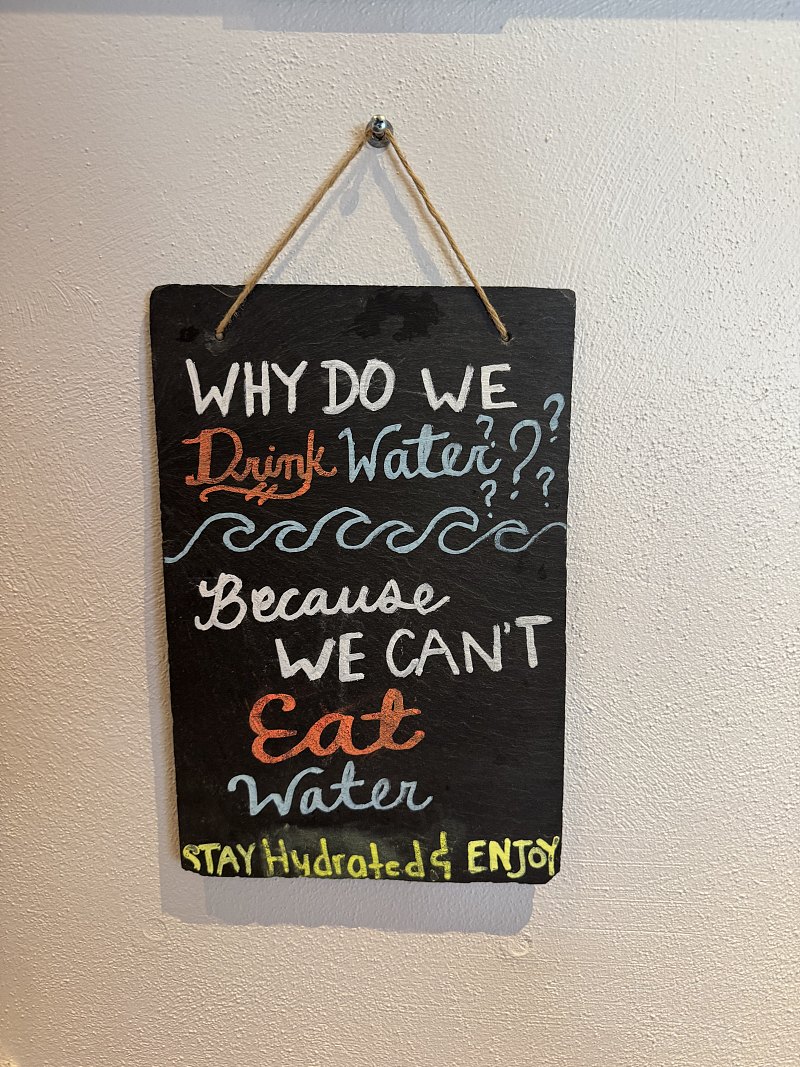 WHY DO WE
Drink Water?????
Because
WE CAN'T
Eat
Water
STAY Hydrated & ENJOY